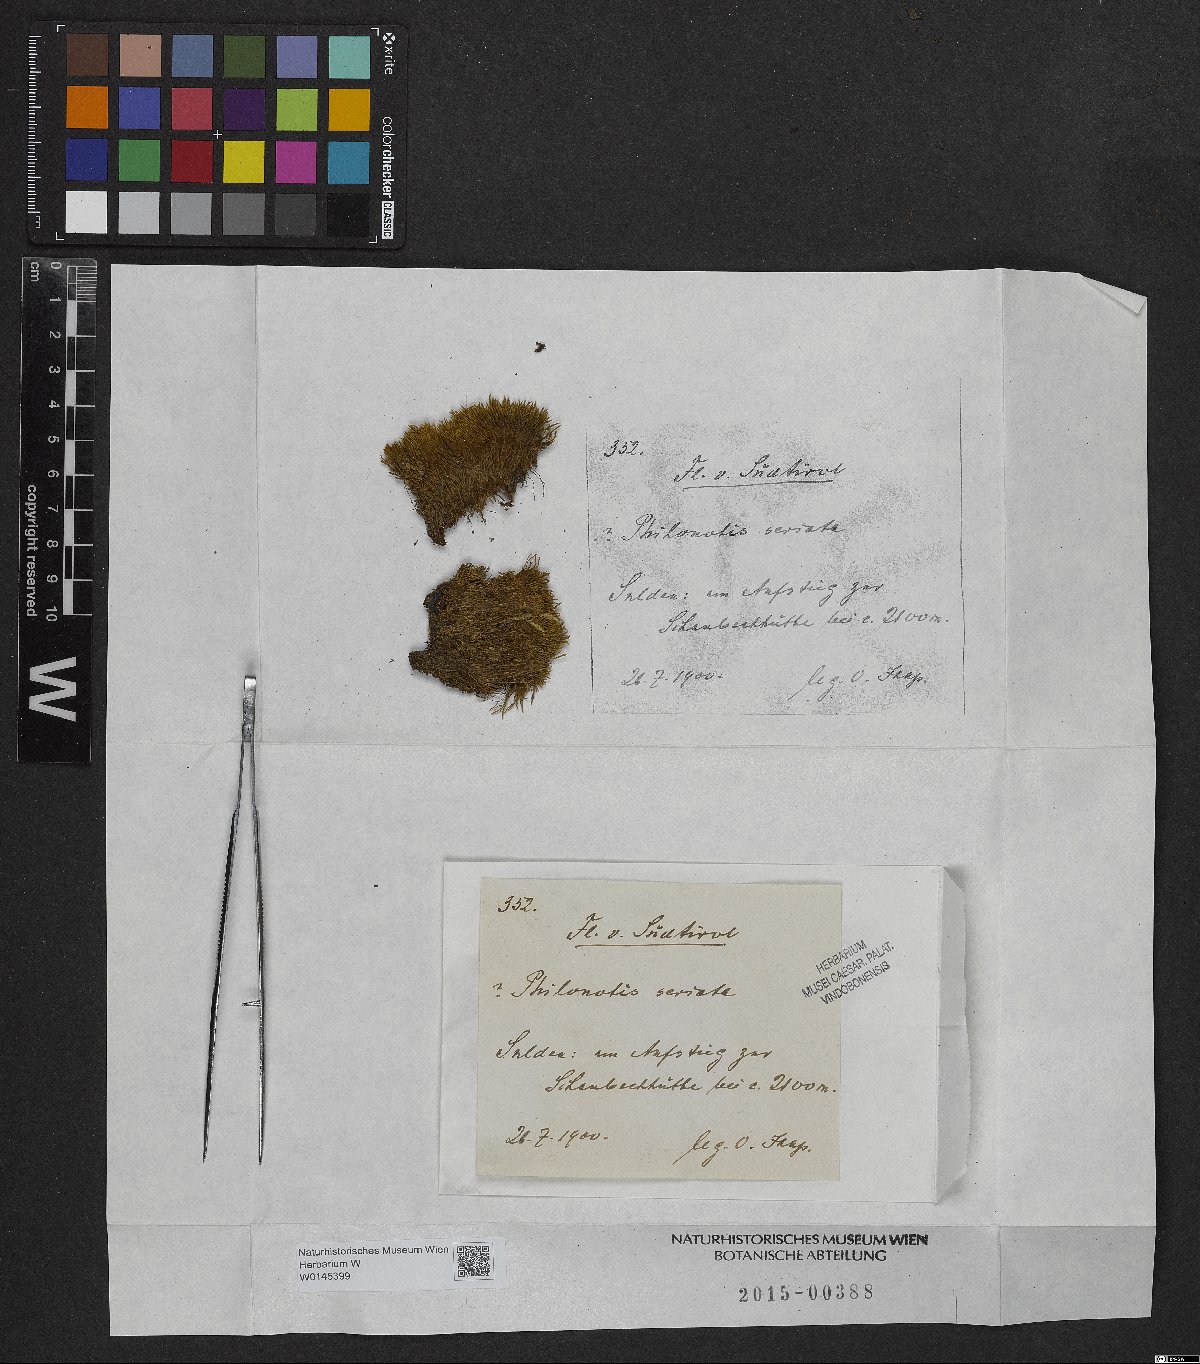 x-rite
colorchecker CLASSIC
cm
0 1 2 3 4 5 6 7 8 9 10
copyright reserved
W
352.
Fl. v. Südtirol
? Philonotis seriata
Sulden: im Aufstieg zur
Schaubachhütte bei c. 2100m.
26.7.1900. leg. O. Jaap.
352.
Fl. v. Südtirol
? Philonotis seriata
Sulden: im Aufstieg zur
Schaubachhütte bei c. 2100m.
26.7.1900. leg. O. Jaap.
HERBARIUM
MUSEI CAESAR. PALAT.
VINDOBONENSIS
Naturhistorisches Museum Wien
Herbarium W
W0145399
NATURHISTORISCHES MUSEUM WIEN
BOTANISCHE ABTEILUNG
2015-00388